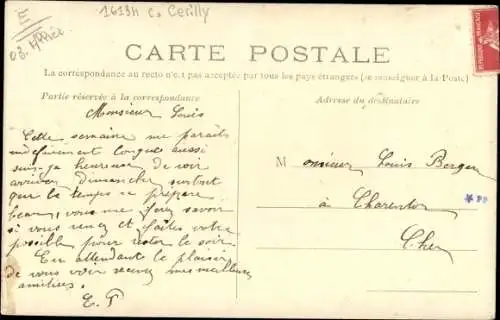 16134 c. Cerilly
E
03. Allier
CARTE POSTALE
La correspondance au recto n'est pas acceptée par tous les pays étrangers (se renseigner à la Poste)
Partie réservée à la correspondance
Adresse du destinataire
Monsieur Louis
Cette semaine me paraît
indéfiniment longue aussi
suis-je heureuse de voir
arriver dimanche surtout
que le temps se prépare
beau, vous me ferez savoir
si vous venez et faites votre
possible pour rester le soir.
En attendant le plaisir
de vous voir recevez mes meilleures
amitiés.
E. P
Monsieur Louis Berger
à Charenton
Cher
PP